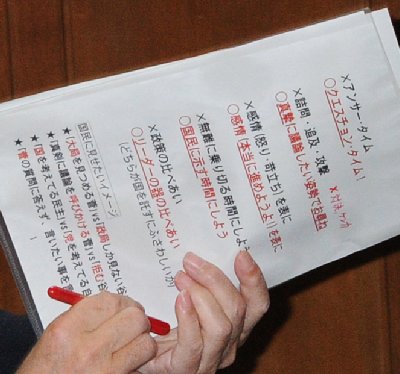 ×アンサー・タイム
○クエスチョン・タイム！
×詰問・追及・攻撃
○真摯に議論したい姿勢で
×感情（怒り・苛立ち）を表に
○感情（本当に進めようよ！）を表に
×無難に乗り切る時間にしよ
○国民に示す時間にしよう
×政策の比べあい
○リーダーの器の比べあい
（どちらが国を託すにふさわしいか）
国民に見せたいイメージ
★大局を見つめる菅 vs 政局しか見ない谷
★真剣に議論を呼びかける菅 vs 拒む
★国を考えてる民主 vs 党を考えてる自
★菅の質問に答えず、言いたい事を